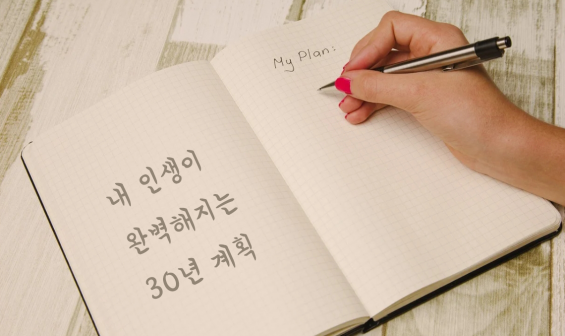 내 인생이
완벽해지는
30년 계획
My Plan: